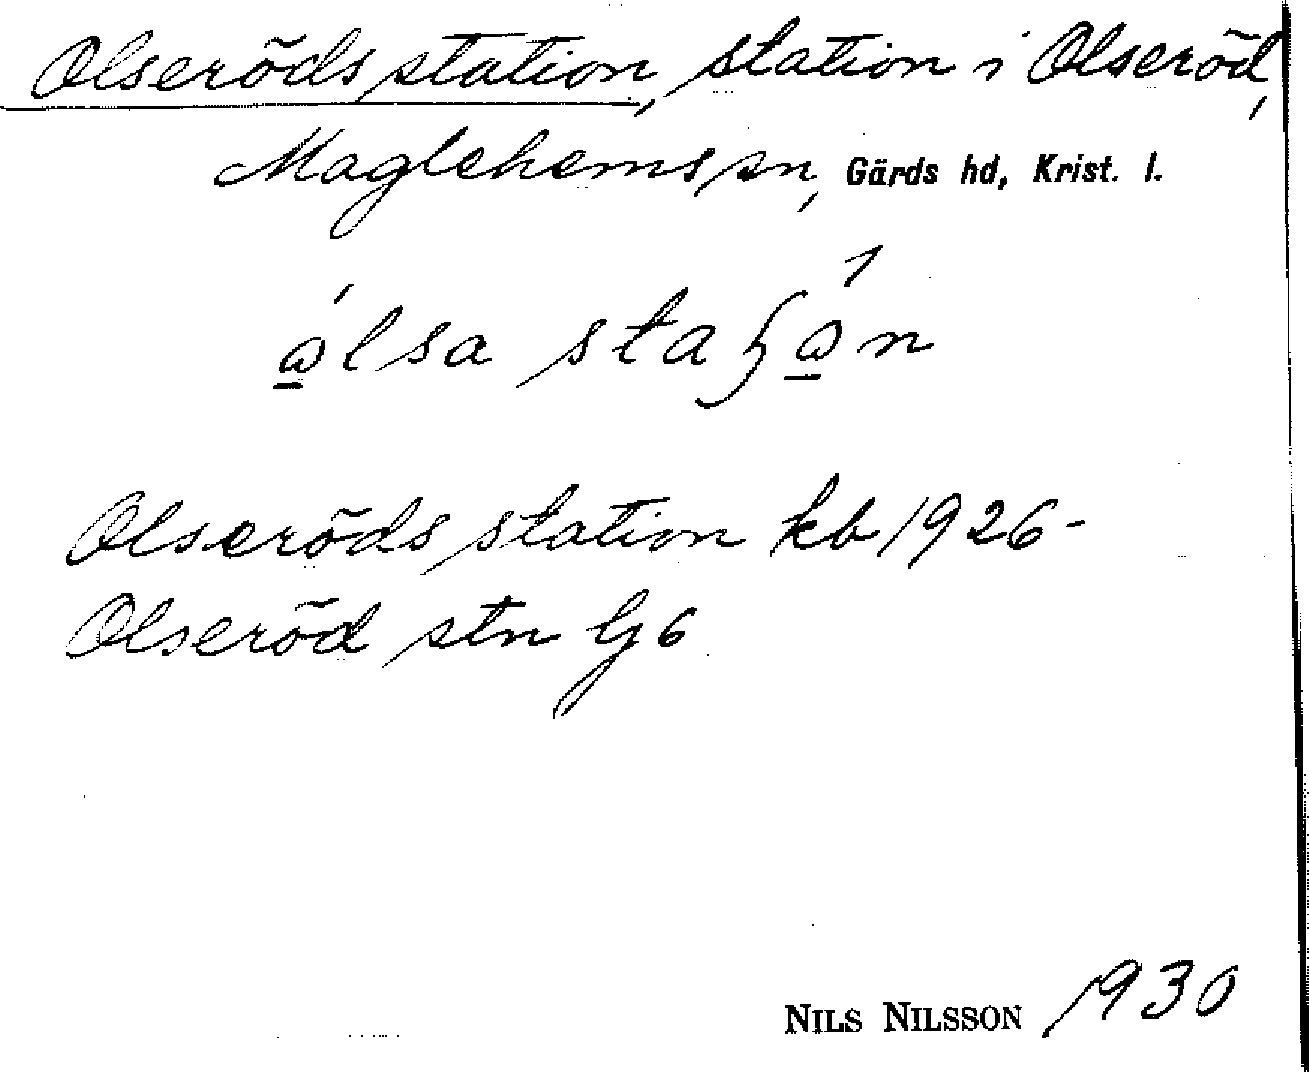 Olseröds station, station i Olseröd,
Maglehems sn, Gärds hd, Krist. l.
ώ̲lsa staɧώ̲n
Olseröds station kb 1926-
Olseröd stn Gj 6
NILS NILSSON 1930